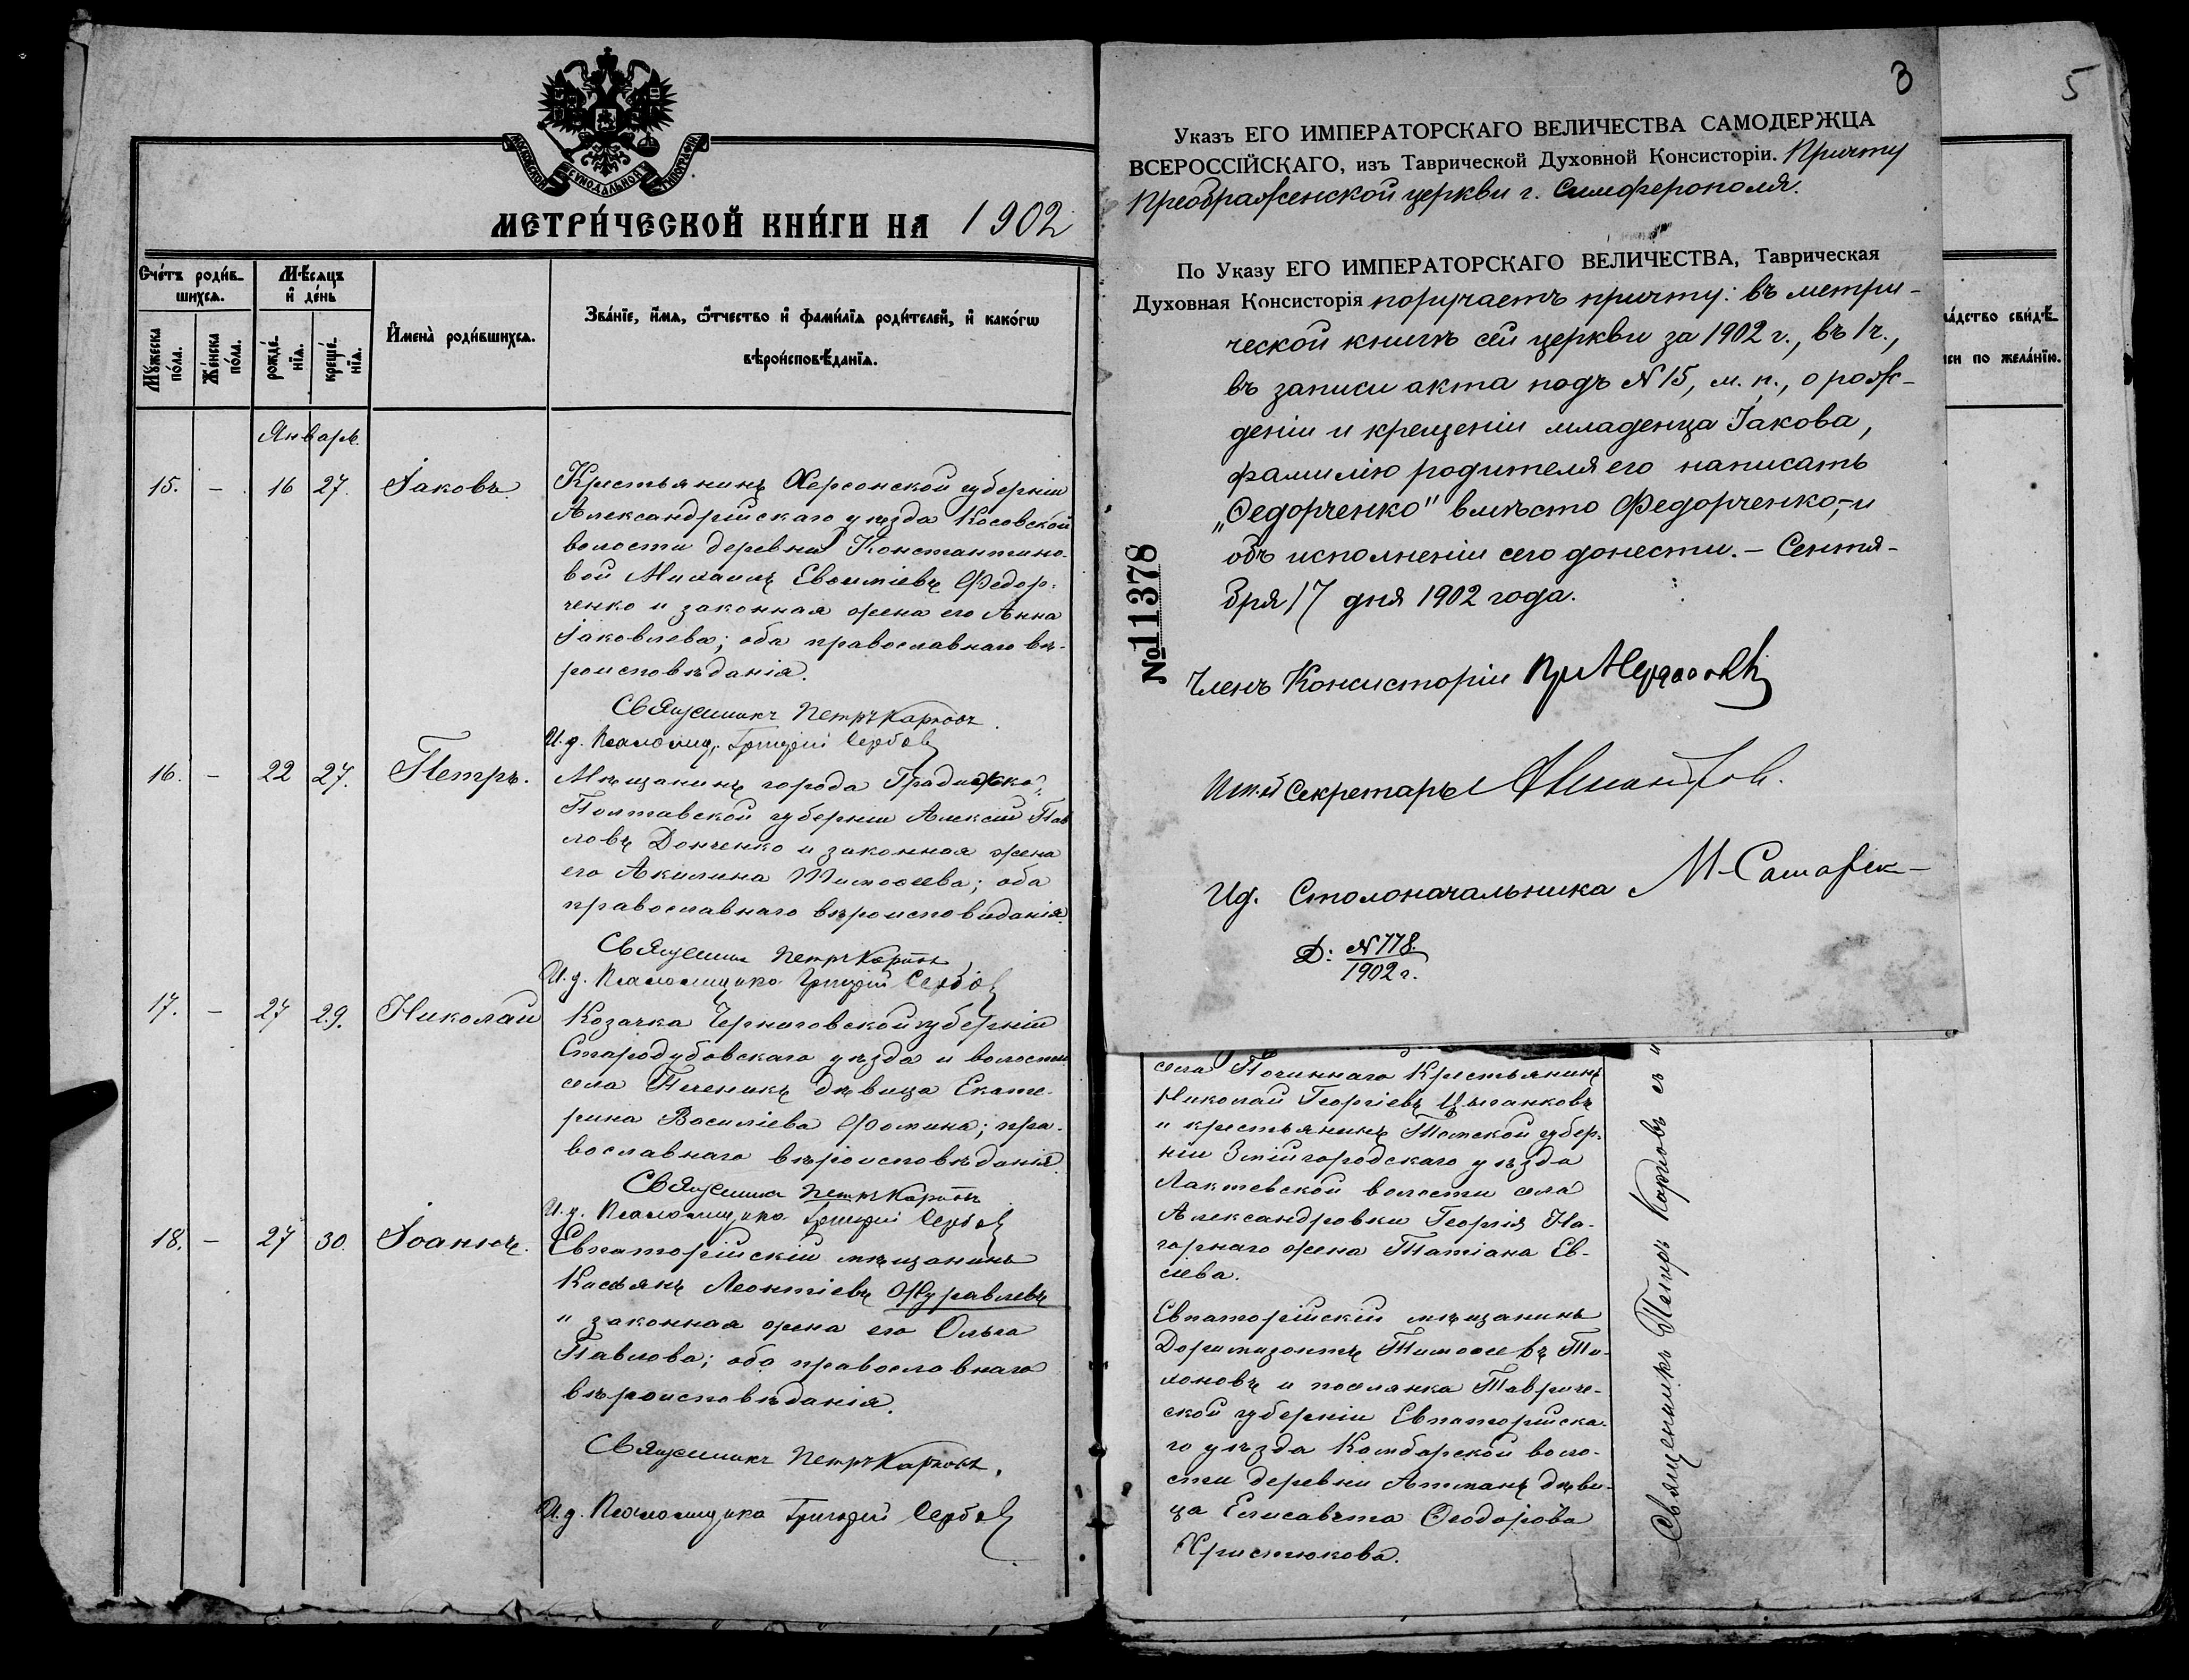 МОСКОВСКОЙ СѴНОДАЛЬНОЙ ТИПОГРАФІИ
МЕТРИ́ЧЕСКОЙ КНИ́ГИ НА 1902
Счéтъ роди́в-
шихсѧ.
Мѣсѧцъ
и҆ дéнь
И҆менà роди́вшихсѧ.
Звáнїе, и҆́мѧ, ѻ҆́тчество и҆ фами́лїѧ роди́телей, и҆ какóгѡ
вѣроисповѣ́данїѧ.
Мꙋ́жеска
пóла.
Жéнска
пóла.
рождé-
нїѧ.
крещé-
нїѧ.
Январь.
15. – 16 27. Іаковъ.
Крестьянинъ Херсонской губерніи
Александрійскаго уѣзда Косовской
волости деревни Константино-
вой Михаилъ Евѳиміевъ Федор-
ченко и законная жена его Анна
Іаковлева; оба православнаго вѣ-
роисповѣданія.
Священникъ Петръ Карповъ.
И.д. Псаломщ. Григорій Сербовъ
16. – 22 27. Петръ.
Мѣщанинъ города Градижска
Полтавской губерніи Алексій Пав
ловъ Донченко и законная жена
его Акилина Тимоѳеева; оба
православнаго вѣроисповѣданія.
Священникъ Петръ Карповъ
И.д. Псаломщика Григорій Сербовъ
17. – 27 29. Николай
Козачка Черниговской губерніи
Стародубовскаго уѣзда и волости
села Печеникъ дѣвица Екате-
рина Василіева Фомина; пра-
вославнаго вѣроисповѣданія.
Священникъ Петръ Карповъ
И.д. Псаломщика Григорій Сербовъ
18. – 27 30. Іоаннъ.
Евпаторійскій мѣщанинъ
Касьянъ Леонтіевъ Журавлевъ
и законная жена его Ольга
Павлова; оба православнаго
вѣроисповѣданія.
Священникъ Петръ Карповъ.
И.д. Псаломщика Григорій Сербовъ
3
5
Указъ ЕГО ИМПЕРАТОРСКАГО ВЕЛИЧЕСТВА САМОДЕРЖЦА
ВСЕРОССІЙСКАГО, изъ Таврической Духовной Консисторіи. Причту
Преображенской церкви г. Симферополя.
По Указу ЕГО ИМПЕРАТОРСКАГО ВЕЛИЧЕСТВА, Таврическая
Духовная Консисторія поручаетъ причту: въ метри-
ческой книгѣ сей церкви за 1902 г., въ 1 ч.,
въ записи акта подъ N 15, м. п., о рож-
деніи и крещеніи младенца Іакова,
фамилію родителя его написать
„Ѳедорченко" вмѣсто Федорченко,–и
объ исполненіи сего донести.– Сентя-
бря 17 дня 1902 года.
№11378
Членъ Консисторіи
Секретарь
Ид. Столоначальника
Д: N 778.
1902 г.
лáдство свидѣ-
сей по желáнїю.
села Починнаго Крестьянинъ
Николай Георгіевъ Цыганковъ
и крестьянинъ Томской губер-
ніи Зміигородскаго уѣзда
Лактевской волости села
Александровки Георгія На-
горнаго жена Татіана Ев-
сіева.
Евпаторійскій мѣщанинъ
Доримедонтъ Тимоѳеевъ Ти-
хоновъ и поселянка Тавриче-
ской губерніи Евпаторійска-
го уѣзда Камбарской воло-
сти деревни Атманъ дѣви-
ца Елисавета Ѳеодорова
Христюкова.
Священникъ Петръ Карповъ съ и